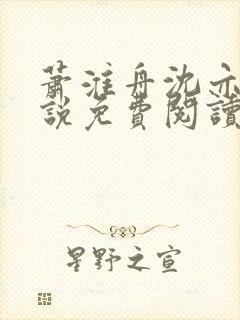 蕭淮舟沈亦
說免費閱讀
星野之宣